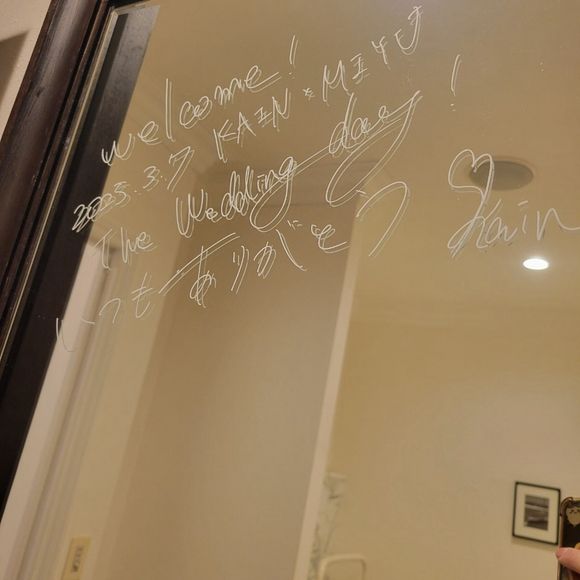 welcome!
2025.3.7 KAIN × MIYU
The Wedding day!
いつもありがとう
Kain